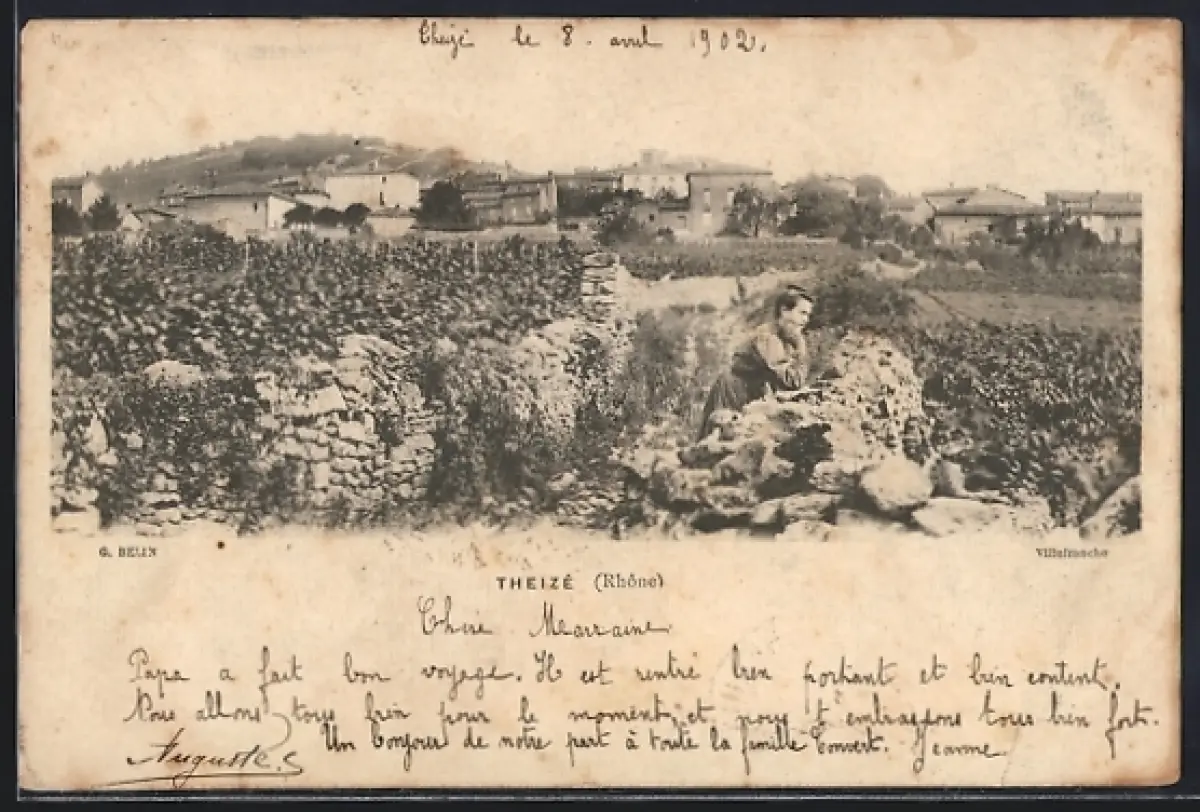 Theizé le 8 avril 1902.
G. BELIN
Villefranche
THEIZÉ (Rhône)
Chère Marraine
Papa a fait bon voyage. Il est rentré bien portant et bien content.
Nous allons tous bien pour le moment et nous t'embrassons tous bien fort.
Un bonjour de notre part à toute la famille Jeanne
Auguste